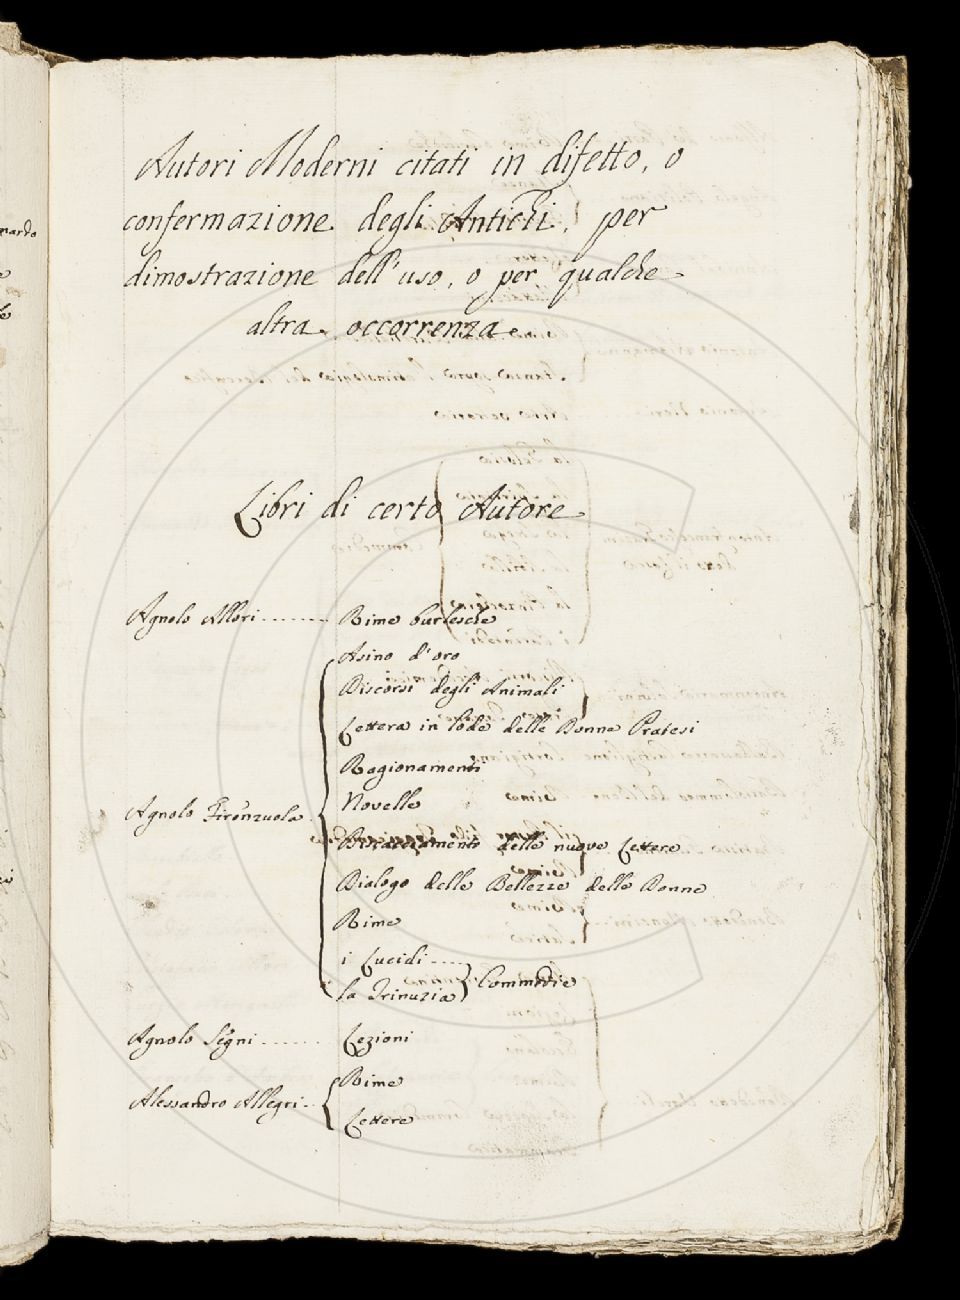 Autori Moderni citati in difetto, o
confermazione degli Antichi, per
dimostrazione dell'uso, o per qualche
altra occorrenza.
Libri di certo Autore
Agnolo Allori ........ Rime burlesche
Asino d'oro
Discorsi degli Animali
Lettera in lode delle Donne Pratesi
Ragionamenti
Novelle
Agnolo Firenzuola
Discacciamento delle nuove Lettere
Dialogo delle Bellezze delle Donne
Rime
i Lucidi ....
la Trinuzia
Commedie
Agnolo Segni ....... Lezioni
Alessandro Allegri ..
Rime
Lettere